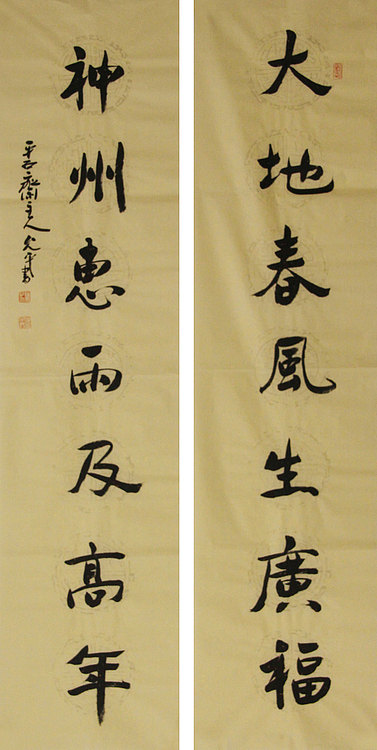 大地春風生廣福
神州惠雨及高年
平齋主人允平書